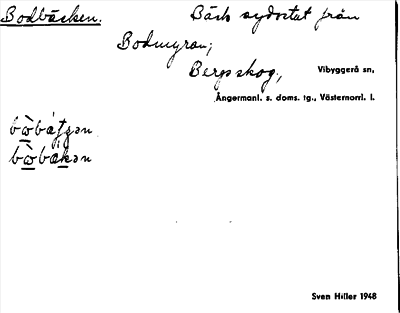 Bodbäcken. Bäck sydostut från
Bodmyran;
Bergsskog, Vibyggerå sn,
Ångermanl. s. doms. tg., Västernorrl. l.
bὼbátʃən
bὼbákən
Sven Hiller 1948